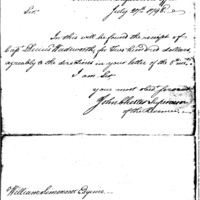 July 27th 1798.
Sir.
In this will be found the receipt of
Capt Decius Wadsworth, for Two hundred dollars,
agreeably to the directions in your letter of the
I am Sir
your most obed. servant
John Chester Supervisor
of the Revenue
William Simmons Esquire